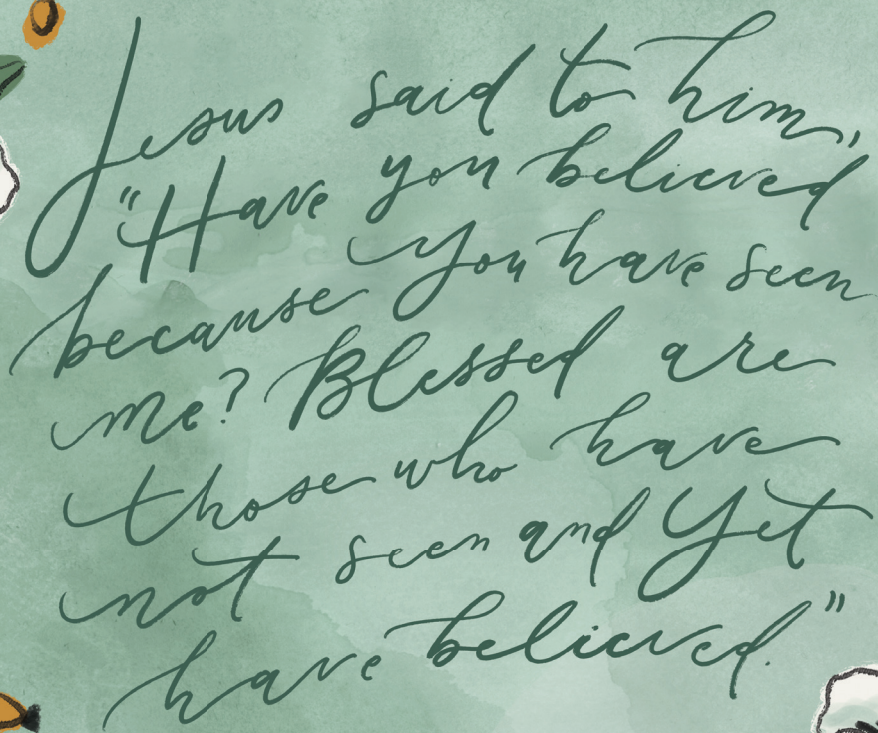 Jesus said to him,
"Have you believed
because you have seen
me? Blessed are
those who have
not seen and yet
have believed."